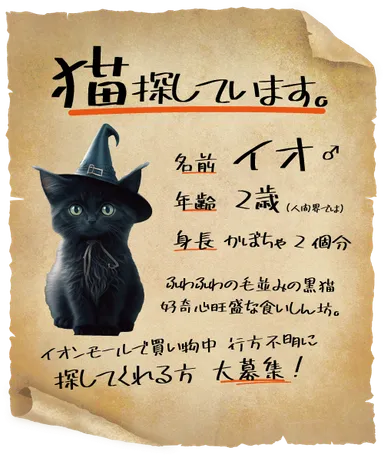 猫探しています。
名前 イオ♂
年齢 2歳(人間界では)
身長 かぼちゃ2個分
ふわふわの毛並みの黒猫
好奇心旺盛な食いしん坊。
イオンモールで買い物中 行方不明に
探してくれる方 大募集!